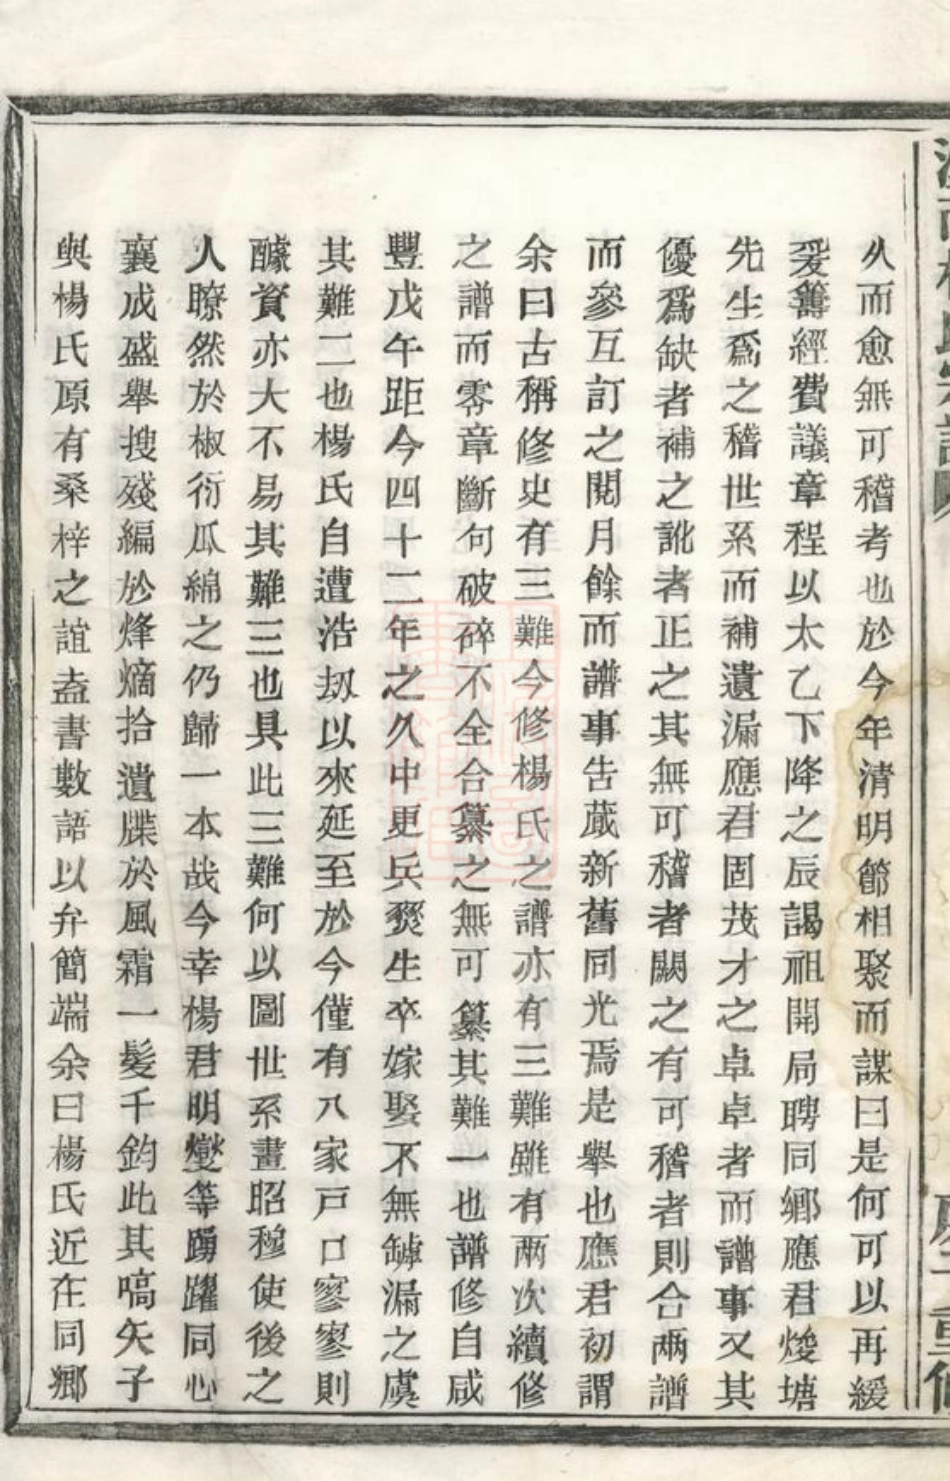 久而愈無可稽考也於今年清明節相聚而謀曰是何可以再緩
爰籌經費議章程以太乙下降之辰謁祖開局聘同鄉應君焌塘
先生爲之稽世系而補遺漏應君固茂才之卓卓者而譜事又其
優爲缺者補之訛者正之其無可稽者闕之有可稽者則合兩譜
而參互訂之閱月餘而譜事告蕆新舊同光焉是舉也應君初謂
余曰古稱修史有三難今修楊氏之譜亦有三難雖有兩次續修
之譜而零章斷句破碎不全合纂之無可纂其難一也譜修自咸
豐戊午距今四十二年之久中更兵燹生卒嫁娶不無罅漏之虞
其難二也楊氏自遭浩刼以來延至於今僅有八家戸口寥寥則
醵資亦大不易其難三也具此三難何以圖世系畫昭穆使後之
人瞭然於椒衍瓜綿之仍歸一本哉今幸楊君明燮等踴躍同心
襄成盛舉搜殘編於烽熵拾遺牒於風霜一髮千鈞此其嚆矢子
與楊氏原有桑梓之誼盍書數語以弁簡端余曰楊氏近在同鄉